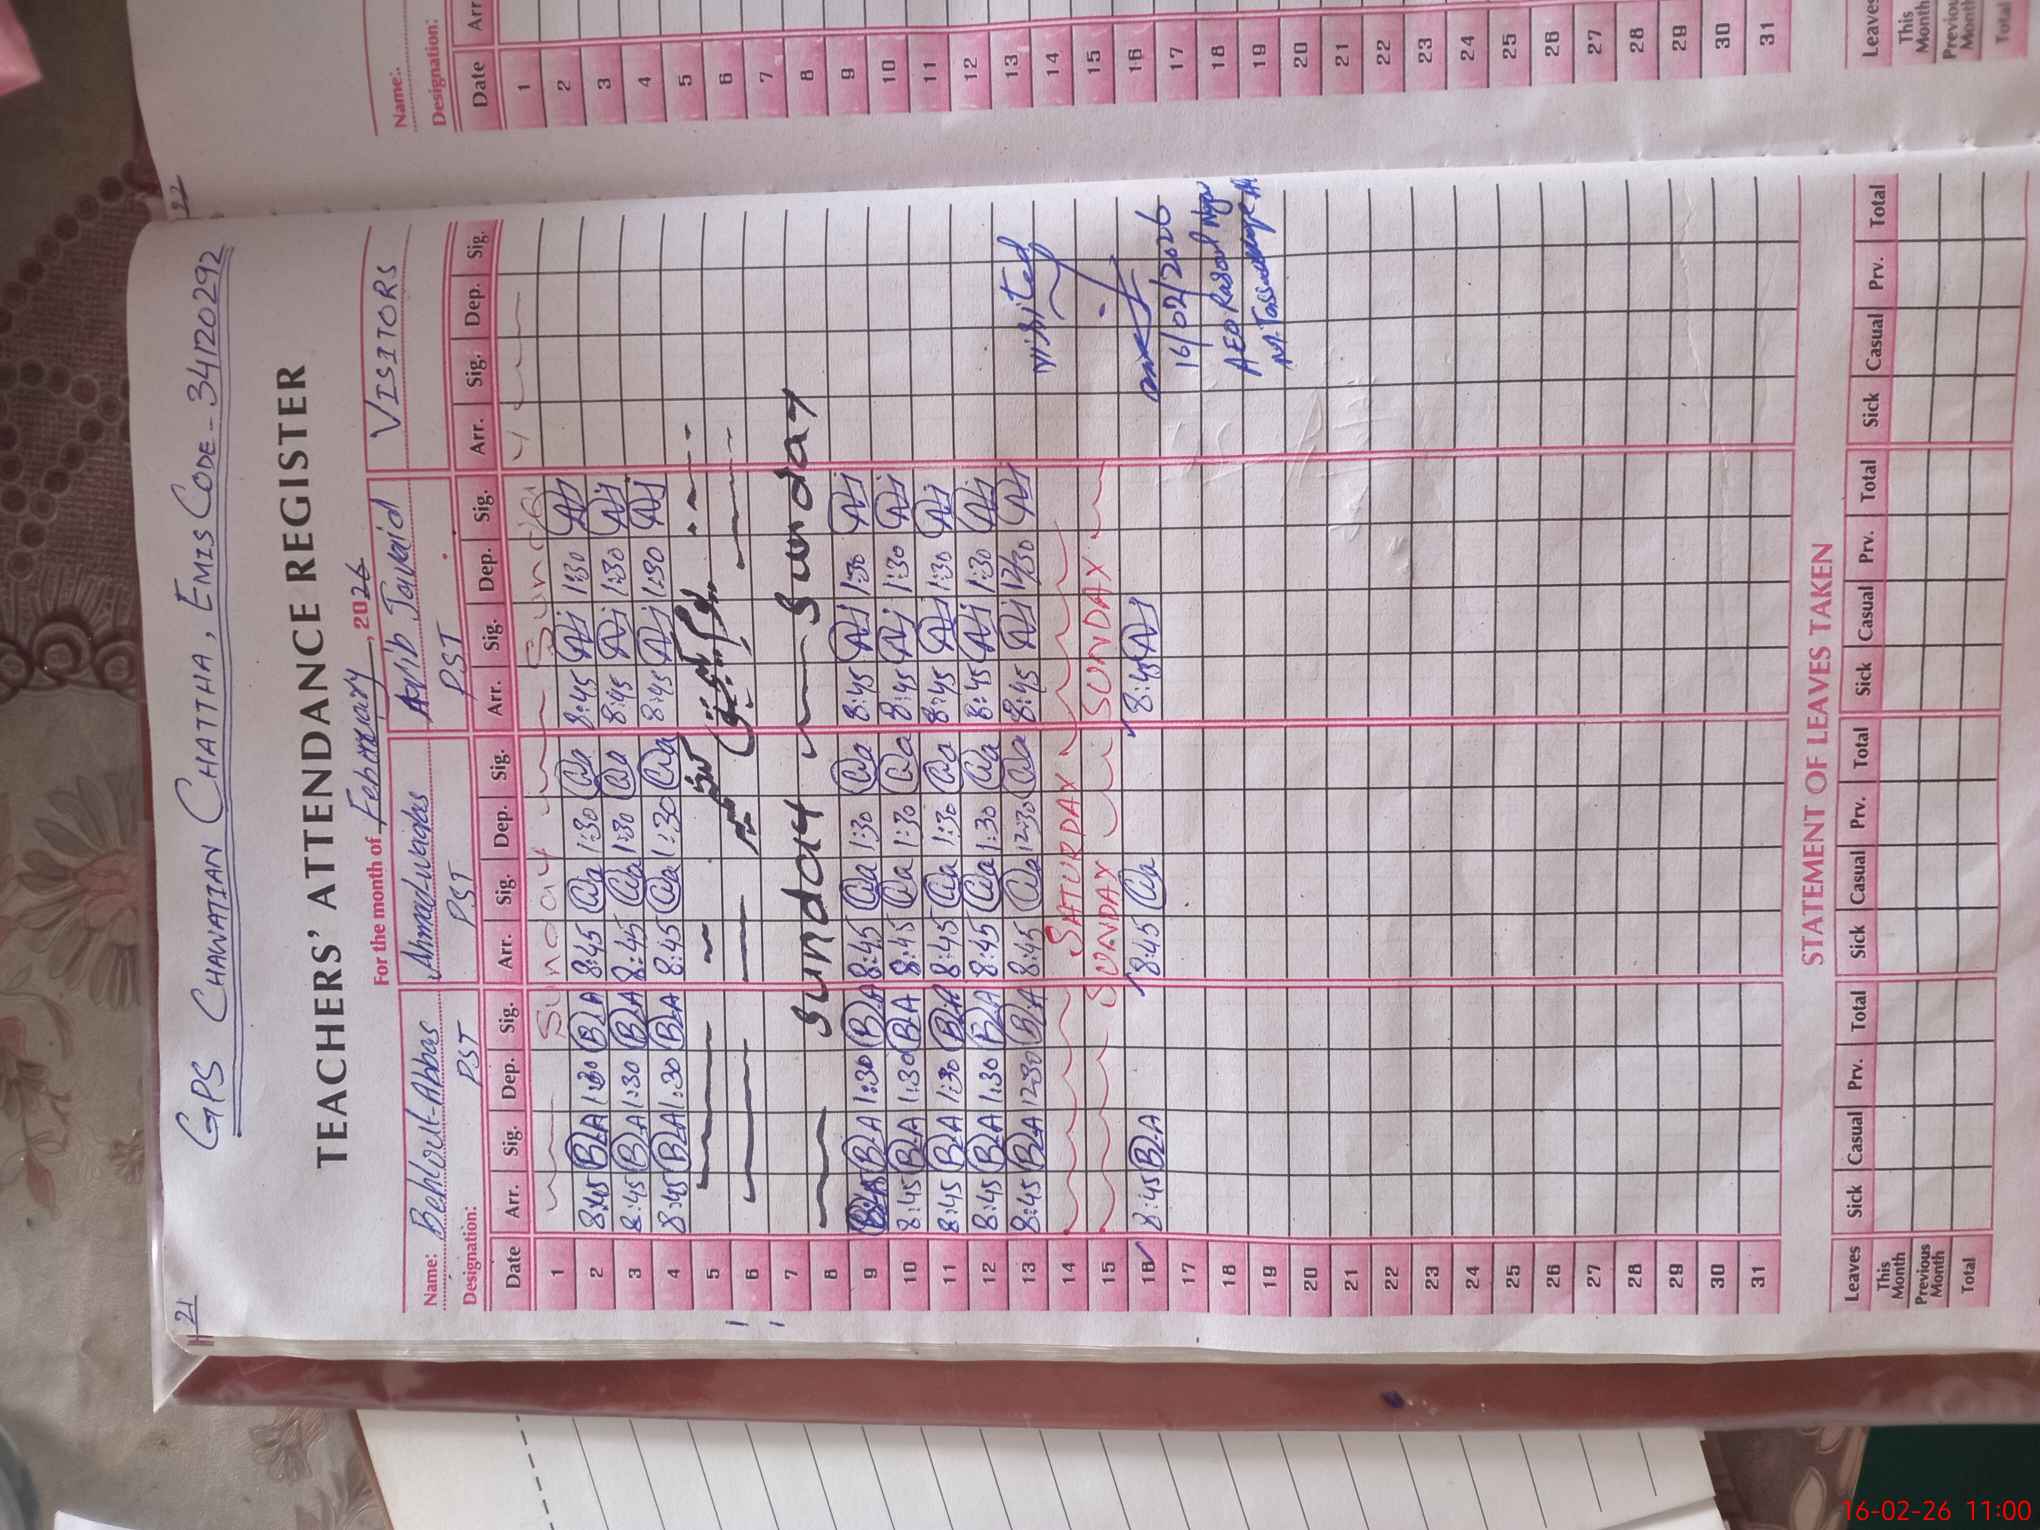 21
22
GPS CHAWATIAN CHATTHA, EMIS CODE-34120292
TEACHERS' ATTENDANCE REGISTER
For the month of February, 2026
Name: Behloul-Abbas Ahmad-waqas Javaid VISITORS
Designation: PST PST PST
Date Arr. Sig. Dep. Sig. Arr. Sig. Dep. Sig. Arr. Sig. Dep. Sig. Arr. Sig. Dep. Sig.
1 Sunday Sunday
2 8:45 B.A 1:30 B.A 8:45 1:30 8:45 Aj 1:30 Aj
3 8:45 B.A 1:30 B.A 8:45 1:30 8:45 Aj 1:30 Aj
4 8:45 B.A 1:30 B.A 8:45 1:30 8:45 Aj 1:30 Aj
5
6
7
8 Sunday Sunday
9 8:45 B.A 1:30 B.A 8:45 1:30 8:45 Aj 1:30 Aj
10 8:45 B.A 1:30 B.A 8:45 1:30 8:45 Aj 1:30 Aj
11 8:45 B.A 1:30 B.A 8:45 1:30 8:45 Aj 1:30 Aj
12 8:45 B.A 1:30 B.A 8:45 1:30 8:45 Aj 1:30 Aj
13 8:45 B.A 12:30 B.A 8:45 12:30 8:45 Aj 12:30 Aj visited
14 SATURDAY
15 SUNDAY SUNDAY
16 8:45 B.A 8:45 8:45 Aj
17 16/02/2026
18 AEO Rasool
19 M.
20
21
22
23
24
25
26
27
28
29
30
31
STATEMENT OF LEAVES TAKEN
Leaves Sick Casual Prv. Total Sick Casual Prv. Total Sick Casual Prv. Total Sick Casual Prv. Total
This Month
Previous Month
Total
Name:
Designation:
Date Arr
1
2
3
4
5
6
7
8
9
10
11
12
13
14
15
16
17
18
19
20
21
22
23
24
25
26
27
28
29
30
31
Leaves
This Month
Previous Month
Total
16-02-26 11:00